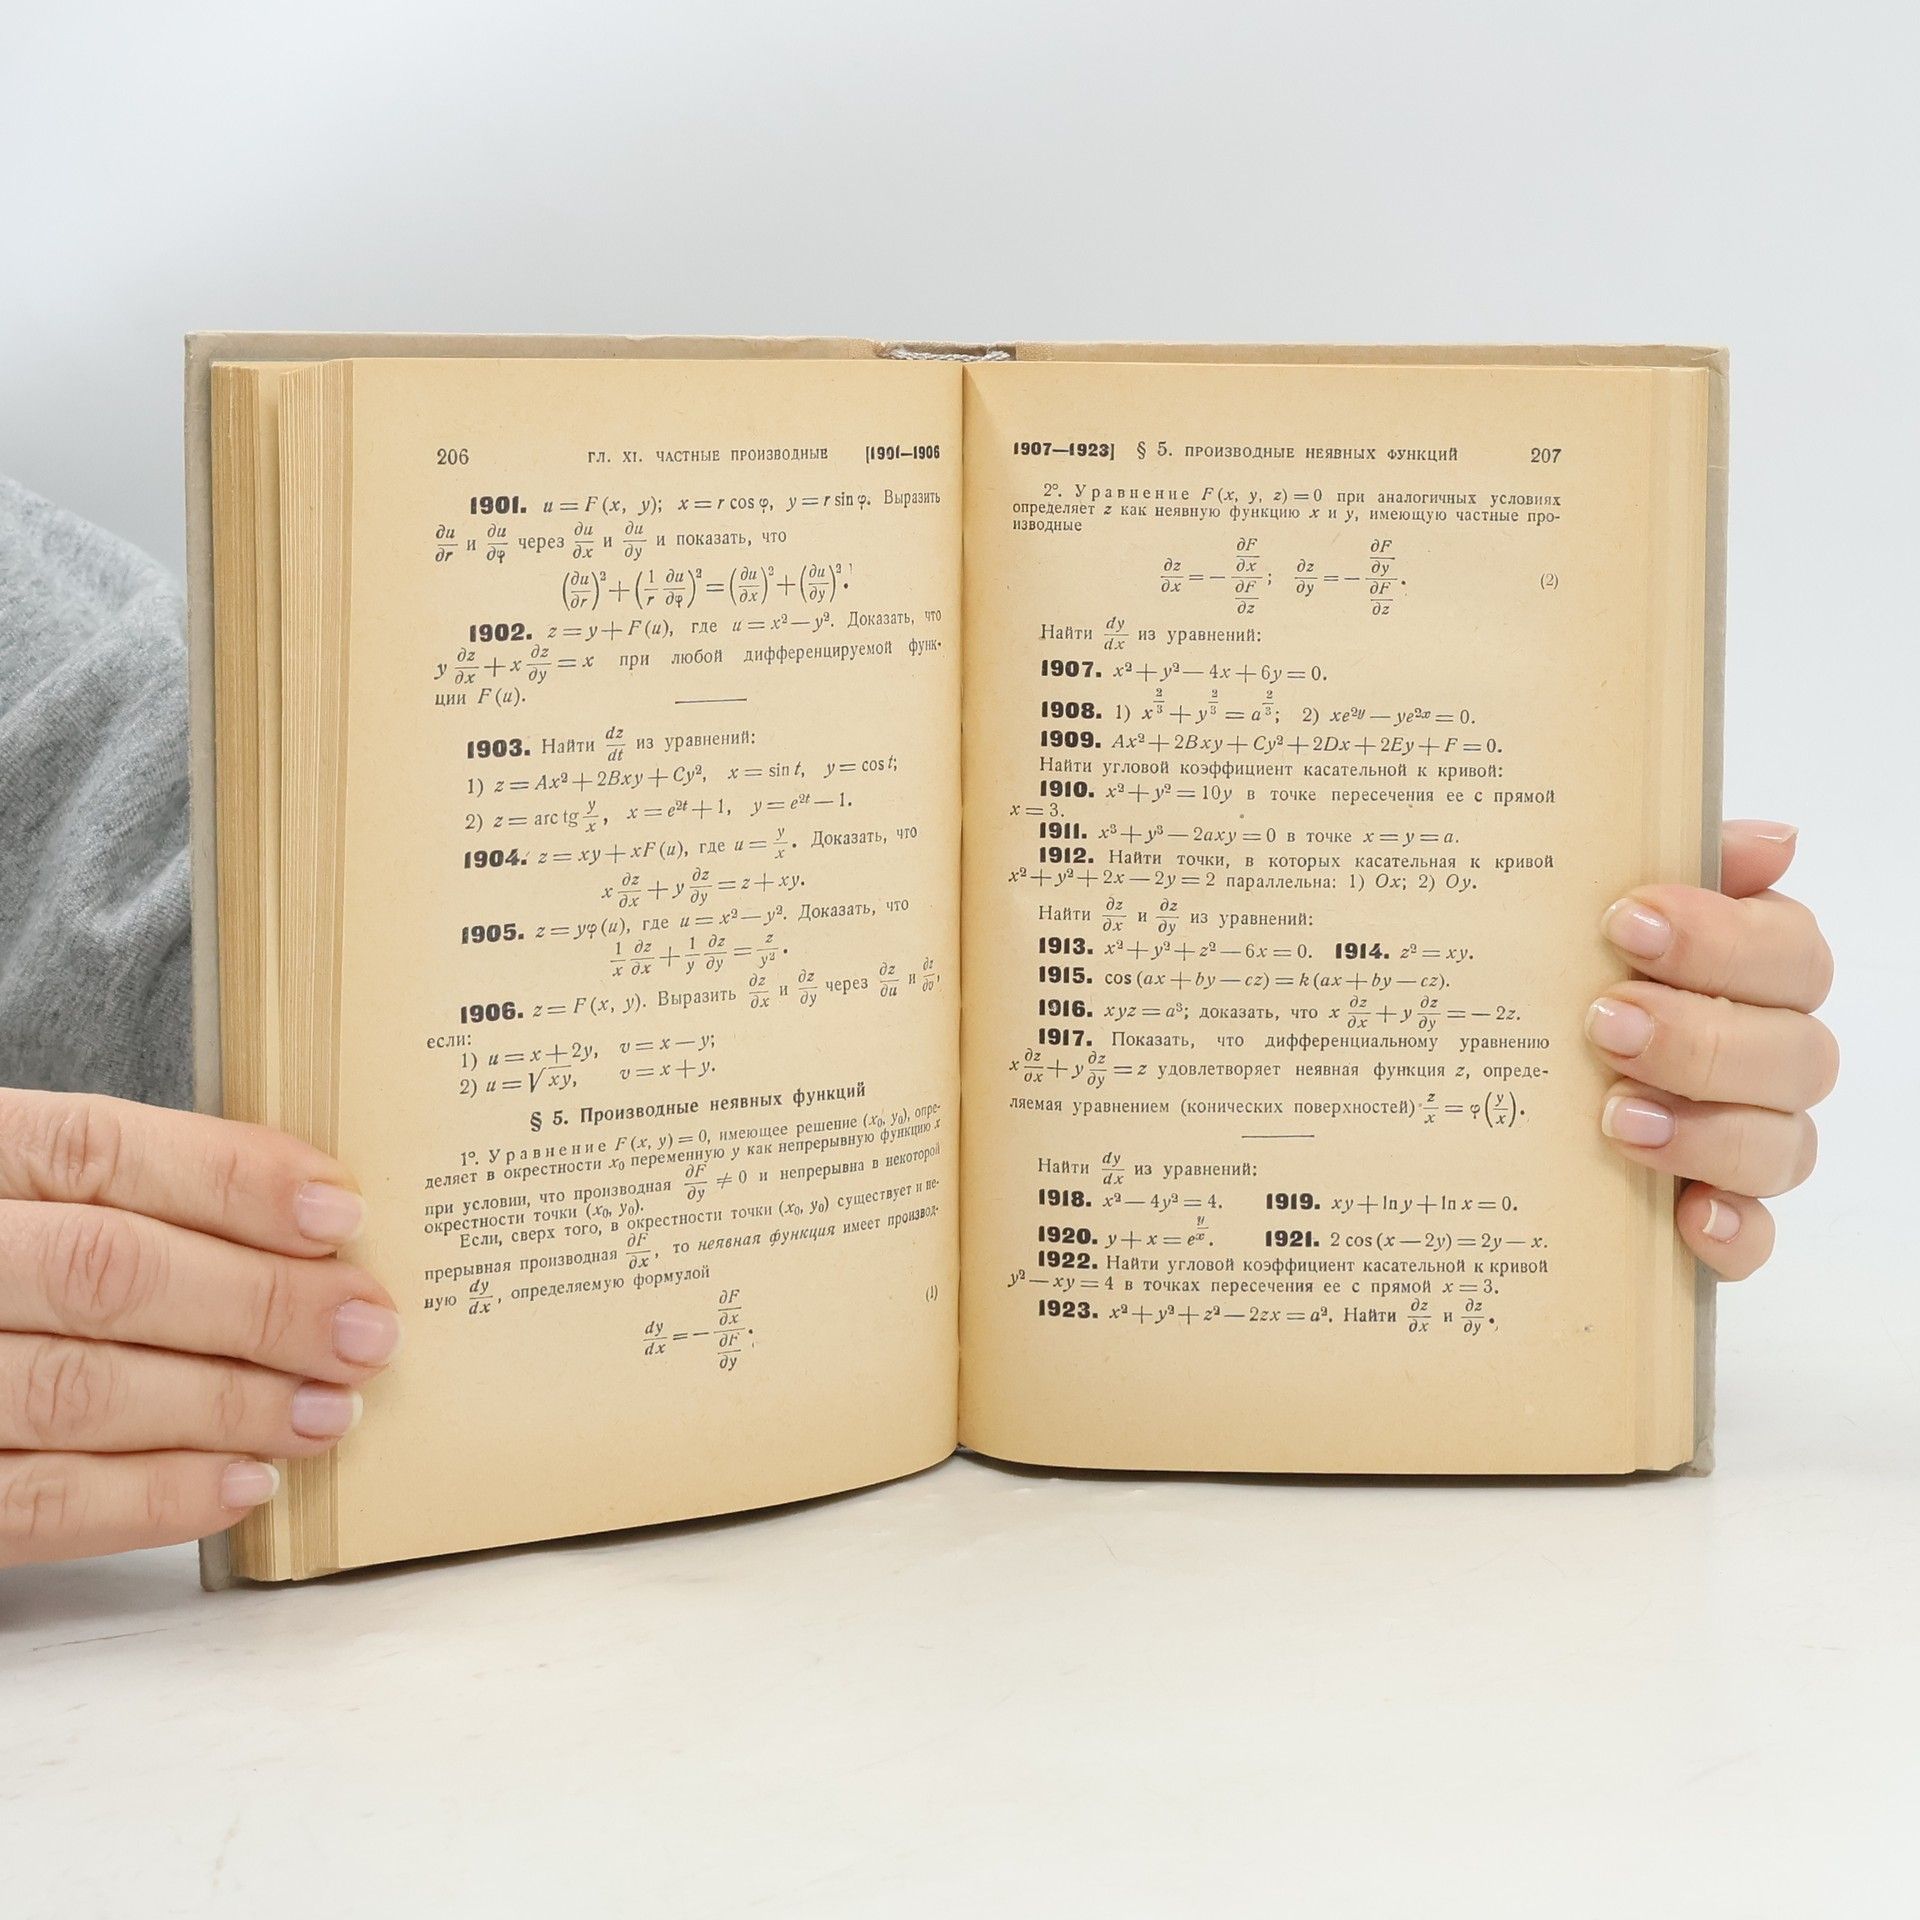 206 ГЛ. XI. ЧАСТНЫЕ ПРОИЗВОДНЫЕ [1901—1906
1901. u = F (x, y); x = r cos φ, y = r sin φ. Выразить
∂u/∂r и ∂u/∂φ через ∂u/∂x и ∂u/∂y и показать, что
(∂u/∂r)² + (1/r ∂u/∂φ)² = (∂u/∂x)² + (∂u/∂y)².
1902. z = y + F (u), где u = x² — y². Доказать, что
y ∂z/∂x + x ∂z/∂y = x при любой дифференцируемой функ-
ции F (u).
1903. Найти dz/dt из уравнений:
1) z = Ax² + 2Bxy + Cy², x = sin t, y = cos t;
2) z = arc tg y/x, x = e²ᵗ + 1, y = e²ᵗ — 1.
1904. z = xy + xF (u), где u = y/x. Доказать, что
x ∂z/∂x + y ∂z/∂y = z + xy.
1905. z = yφ (u), где u = x² — y². Доказать, что
1/x ∂z/∂x + 1/y ∂z/∂y = z/y².
1906. z = F (x, y). Выразить ∂z/∂x и ∂z/∂y через ∂z/∂u и ∂z/∂v,
если:
1) u = x + 2y, v = x — y;
2) u = √xy, v = x + y.
§ 5. Производные неявных функций
1°. Уравнение F (x, y) = 0, имеющее решение (x₀, y₀), опре-
деляет в окрестности x₀ переменную y как непрерывную функцию x
при условии, что производная ∂F/∂y ≠ 0 и непрерывна в некоторой
окрестности точки (x₀, y₀).
Если, сверх того, в окрестности точки (x₀, y₀) существует и не-
прерывная производная ∂F/∂x, то неявная функция имеет производ-
ную dy/dx, определяемую формулой
dy/dx = — (∂F/∂x)/(∂F/∂y). (1)
1907—1923] § 5. ПРОИЗВОДНЫЕ НЕЯВНЫХ ФУНКЦИЙ 207
2°. Уравнение F (x, y, z) = 0 при аналогичных условиях
определяет z как неявную функцию x и y, имеющую частные про-
изводные
∂z/∂x = — (∂F/∂x)/(∂F/∂z); ∂z/∂y = — (∂F/∂y)/(∂F/∂z). (2)
Найти dy/dx из уравнений:
1907. x² + y² — 4x + 6y = 0.
1908. 1) x^(2/3) + y^(2/3) = a^(2/3); 2) xe²ʸ — ye²ˣ = 0.
1909. Ax² + 2Bxy + Cy² + 2Dx + 2Ey + F = 0.
Найти угловой коэффициент касательной к кривой:
1910. x² + y² = 10y в точке пересечения ее с прямой
x = 3.
1911. x³ + y³ — 2axy = 0 в точке x = y = a.
1912. Найти точки, в которых касательная к кривой
x² + y² + 2x — 2y = 2 параллельна: 1) Ox; 2) Oy.
Найти ∂z/∂x и ∂z/∂y из уравнений:
1913. x² + y² + z² — 6x = 0. 1914. z² = xy.
1915. cos (ax + by — cz) = k (ax + by — cz).
1916. xyz = a³; доказать, что x ∂z/∂x + y ∂z/∂y = — 2z.
1917. Показать, что дифференциальному уравнению
x ∂z/∂x + y ∂z/∂y = z удовлетворяет неявная функция z, опреде-
ляемая уравнением (конических поверхностей) z/x = φ (y/x).
Найти dy/dx из уравнений:
1918. x² — 4y² = 4. 1919. xy + ln y + ln x = 0.
1920. y + x = e^(y/x). 1921. 2 cos (x — 2y) = 2y — x.
1922. Найти угловой коэффициент касательной к кривой
y² — xy = 4 в точках пересечения ее с прямой x = 3.
1923. x² + y² + z² — 2zx = a². Найти ∂z/∂x и ∂z/∂y.